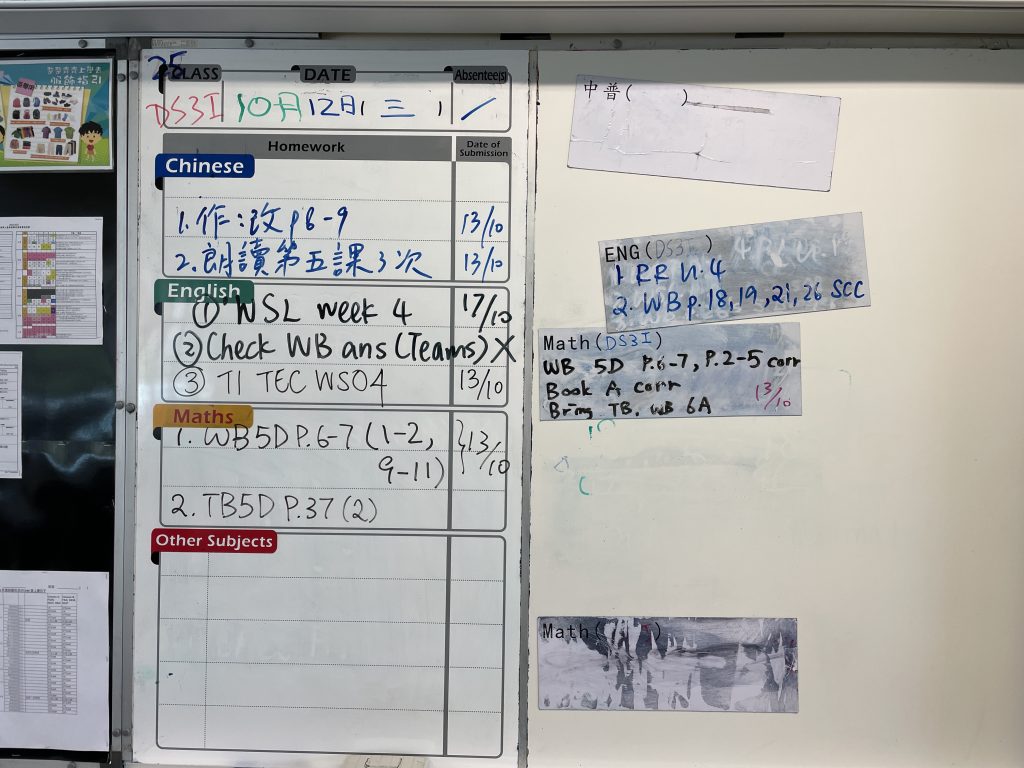 25
CLASS DATE Absentee(s)
DS3I 10月12日 三 /
Homework Date of Submission
Chinese
1.作:改p8-9 13/10
2.朗讀第五課3次 13/10
English
① NSL week 4 17/10
② Check WB ans (Teams) X
③ T1 TEC WS04 13/10
Maths
1. WB5D P.6-7 (1-2, 13/10
9-11)
2. TB5D P.37 (2)
Other Subjects
服飾指引
中普( )
ENG(DS3I)
1 RR U.4
2. WB p.18, 19, 21, 26 SCC
Math(DS3I)
WB 5D P.6-7, P.2-5 corr
Book A corr 13/10
Bring TB, WB 6A
Math( )